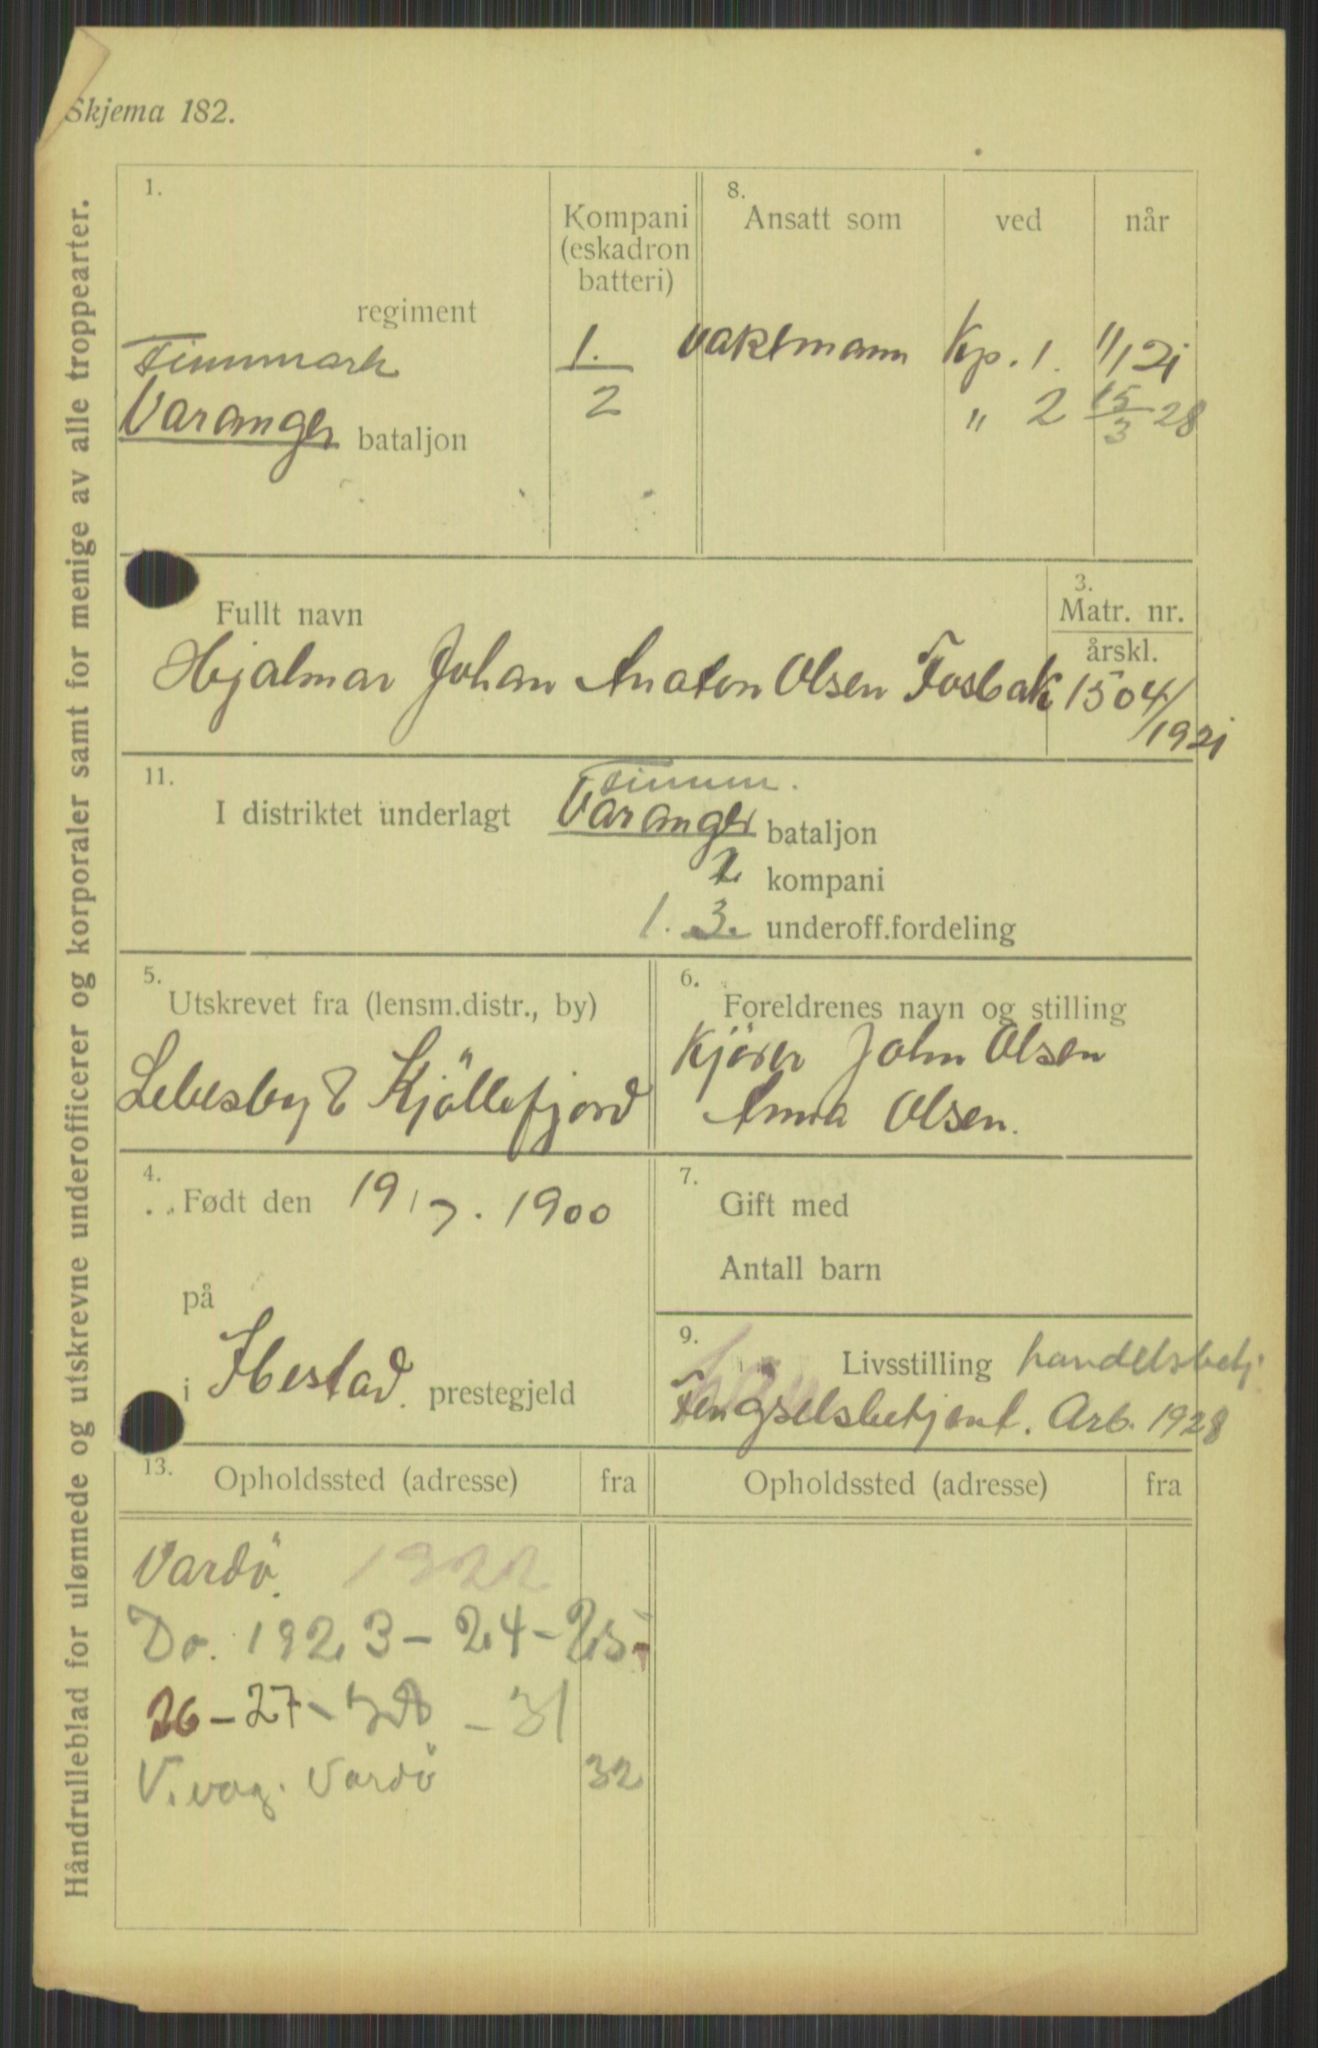 Skjema 182.
Håndrulleblad for ulønnede og utskrevne underofficerer og korporaler samt for menige av alle troppearter.
1.
regiment
Finnmark
Varanger bataljon
Kompani
(eskadron
batteri)
1.
2
8.
Ansatt som
ved
når
vaktmann Kp. 1. 1/1 21
" 2 15/3 28
Fullt navn
Hjalmar Johan Anaton Olsen Fosbak
3.
Matr. nr.
årskl.
1504/
1921
11.
I distriktet underlagt
Finnm.
Varanger bataljon
2 kompani
1. 3. underoff.fordeling
5.
Utskrevet fra (lensm.distr., by)
Lebesby & Kjöllefjord
6.
Foreldrenes navn og stilling
Kjörer John Olsen
Anna Olsen.
4.
Født den 19/7. 1900
på
i Ibestad. prestegjeld
7.
Gift med
Antall barn
9.
Livsstilling handelsbetj.
Fengselsbetjent. Arb. 1928
13.
Opholdssted (adresse) fra
Opholdssted (adresse) fra
Vardö. 1922
Do. 1923 - 24 - 25 -
26 - 27 - - 31
V.vag. Vardö 32